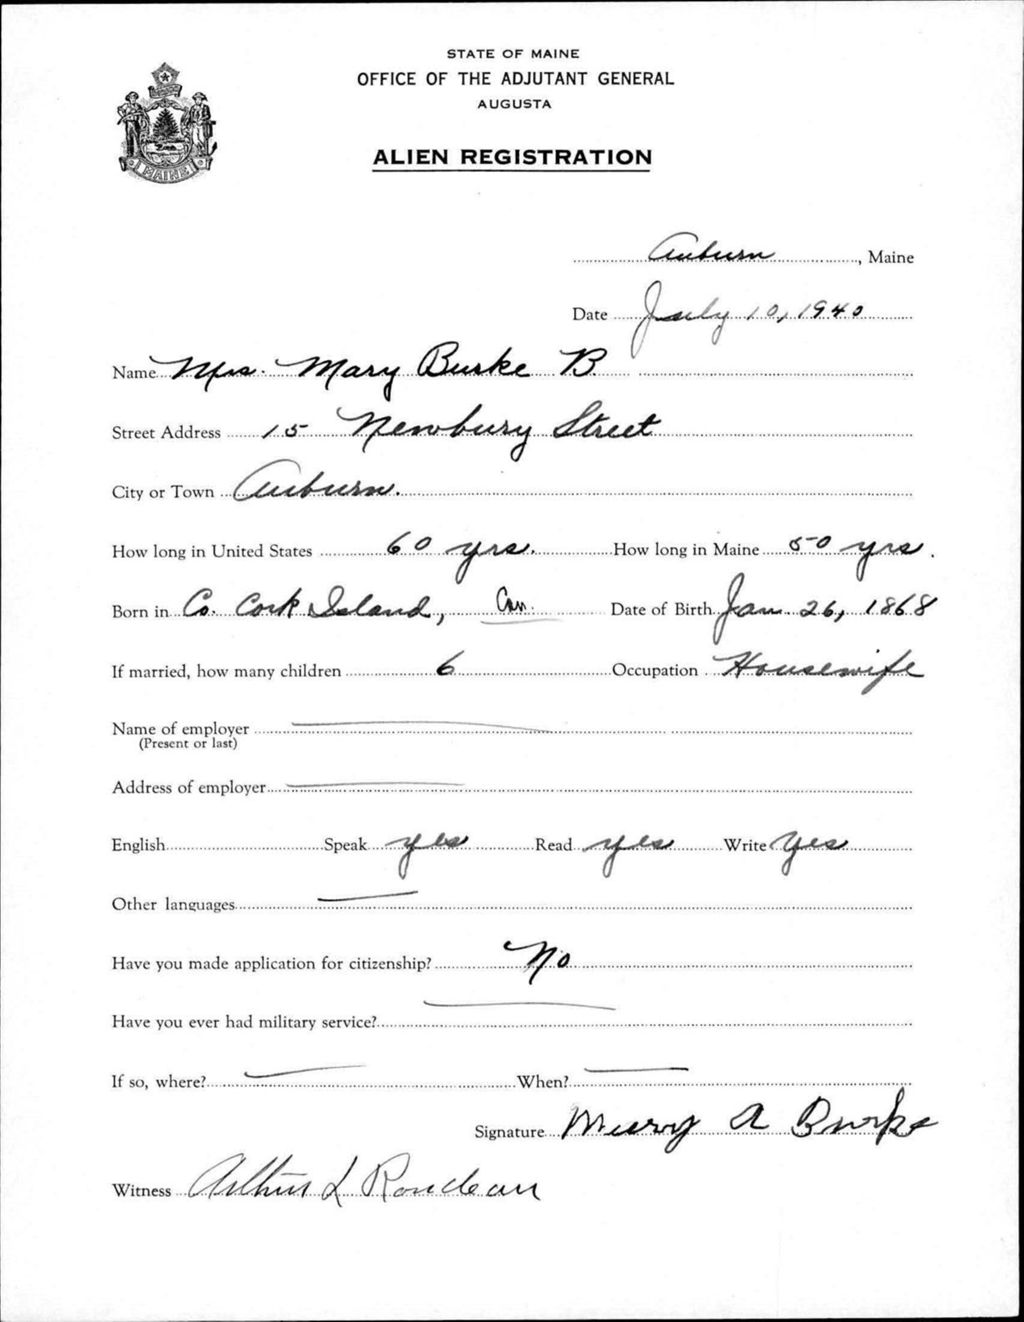 STATE OF MAINE
OFFICE OF THE ADJUTANT GENERAL
AUGUSTA
ALIEN REGISTRATION
MAINE
Auburn, Maine
Date July 10, 1940
Name Mrs. Mary Burke B.
Street Address 15 Newbury Street
City or Town Auburn.
How long in United States 60 yrs. How long in Maine 50 yrs.
Born in Co. Cork Island, Can. Date of Birth Jan. 26, 1868
If married, how many children 6 Occupation Housewife
Name of employer
(Present or last)
Address of employer
English Speak yes Read yes Write Yes
Other languages
Have you made application for citizenship? No
Have you ever had military service?
If so, where? When?
Signature Mary A Burke
Witness Arthur L Rondeau